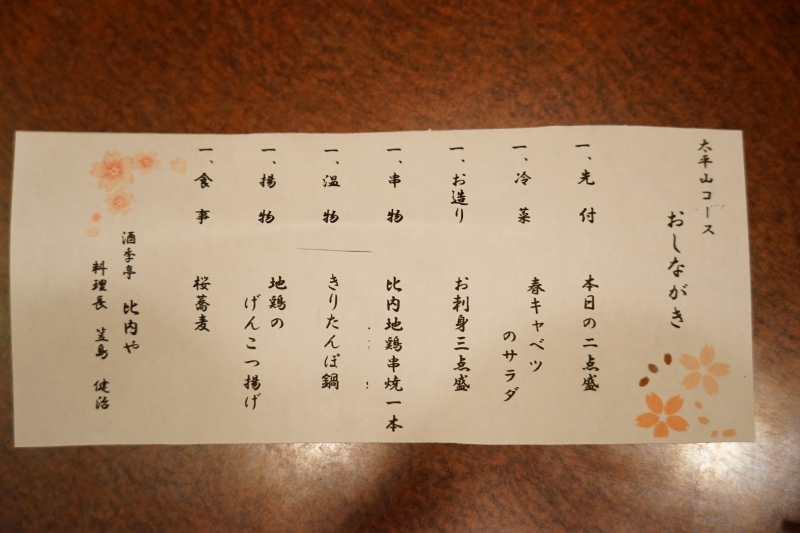 太平山コース
おしながき
一、先付 本日の二点盛
一、冷菜 春キャベツ
のサラダ
一、お造り お刺身三点盛
一、串物 比内地鶏串焼一本
一、温物 きりたんぽ鍋
一、揚物 地鶏の
げんこつ揚げ
一、食事 桜蕎麦
酒季亭 比内や
料理長 笠島 健治